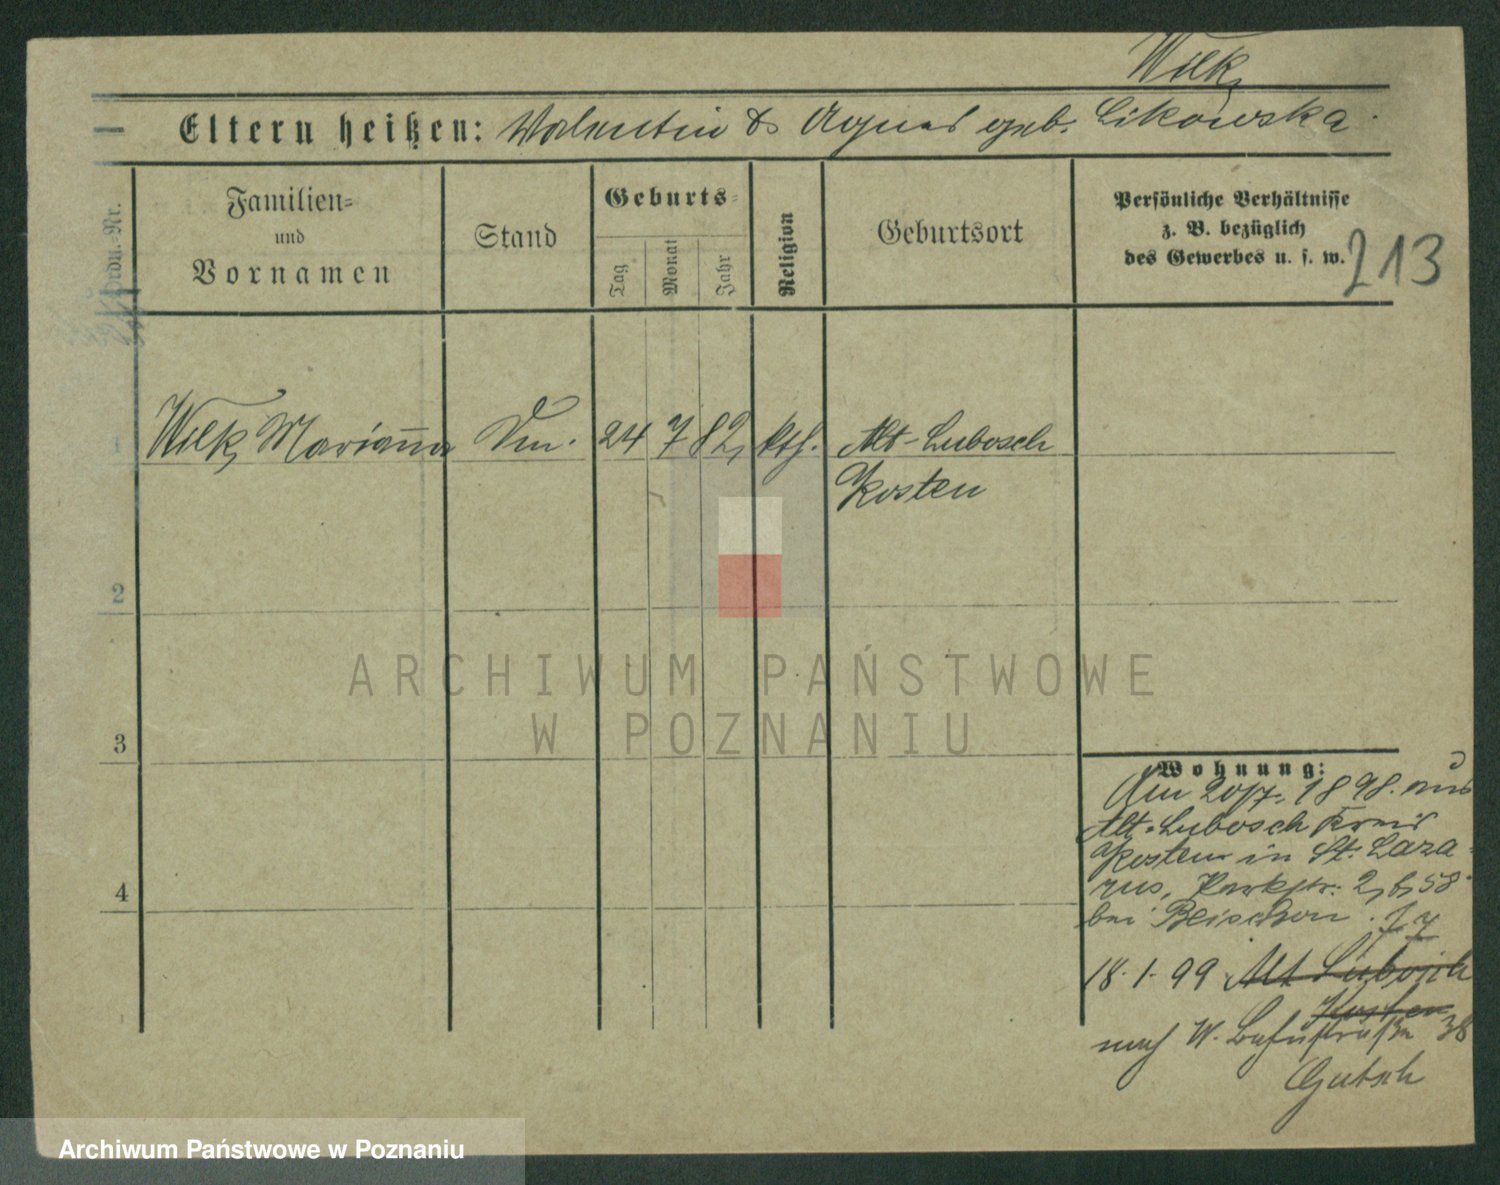 Wilk,
Eltern heißen: Valentin & Agnes geb. Likowska.
Ordn.-Nr.
Familien-
und
Vornamen
Stand
Geburts-
Tag
Monat
Jahr
Religion
Geburtsort
Persönliche Verhältnisse
z. B. bezüglich
des Gewerbes u. s. w.
213
1
Wilk, Marianna
24 7 82,
kth.
Alt-Lubosch
Kosten
2
ARCHIWUM PAŃSTWOWE
W POZNANIU
3
Wohnung:
Am 20/7. 1898. aus
Alt-Lubosch Kreis
Kosten in St. Laza-
rus, Parkstr. 2, b, 58
bei
4
18.1.99 Alt Lubosch
Kosten
nach W. 38
Gutsch
Archiwum Państwowe w Poznaniu